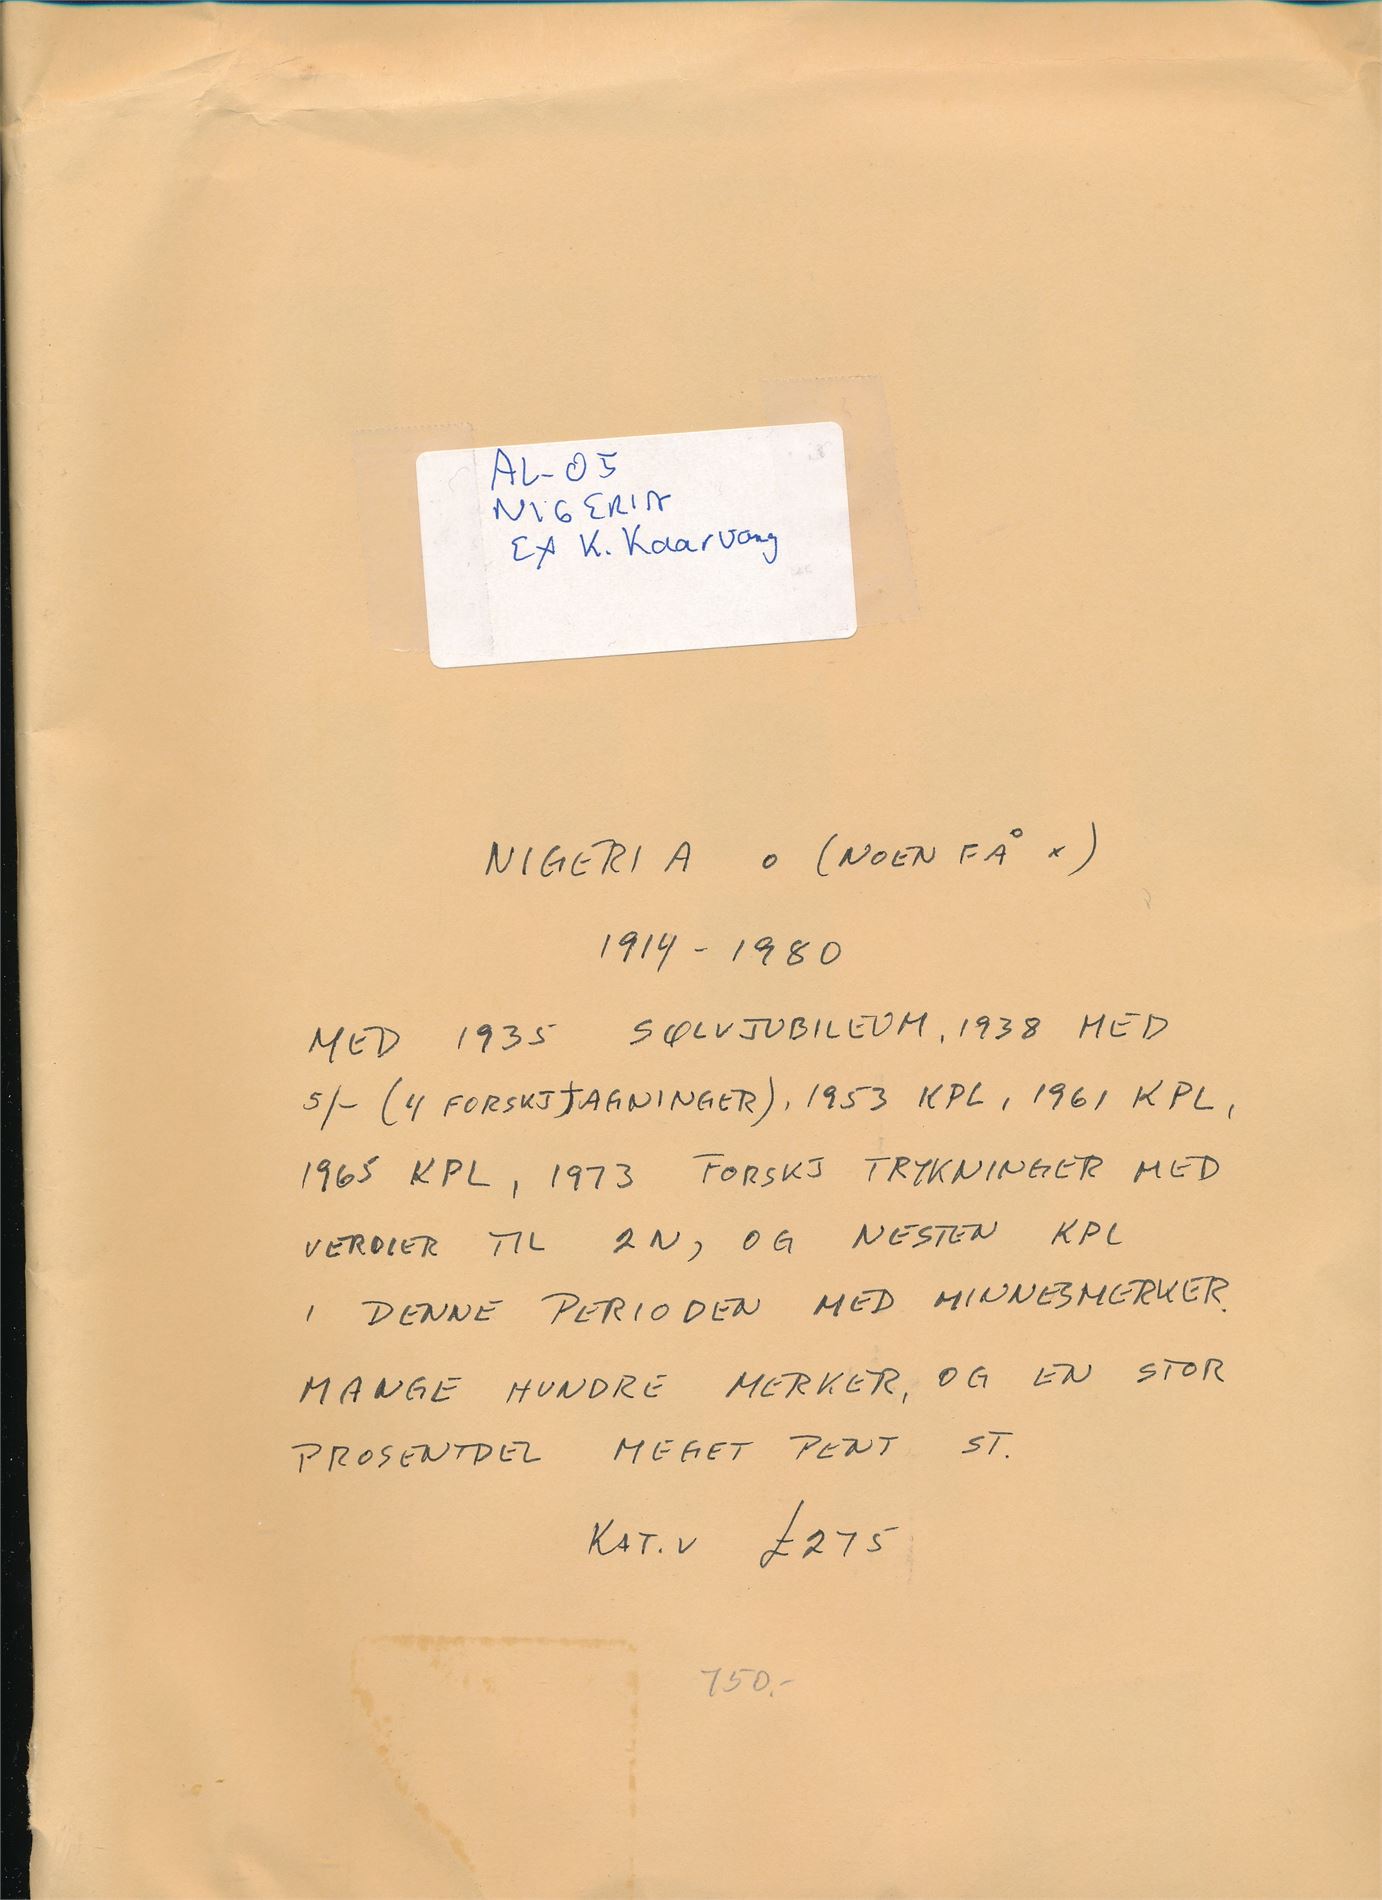 AL-05
NIGERIA
EX K. Kaarvang
NIGERIA o (NOEN FÅ x)
1914 - 1980
MED 1935 SØLVJUBILEUM, 1938 MED
5/- (4 FORSKJ TAGNINGER), 1953 KPL, 1961 KPL,
1965 KPL, 1973 FORSKJ TRYKNINGER MED
VERDIER TIL 2N, OG NESTEN KPL
I DENNE PERIODEN MED MINNESMERKER.
MANGE HUNDRE MERKER, OG EN STOR
PROSENTDEL MEGET PENT ST.
KAT.V £275
750.-